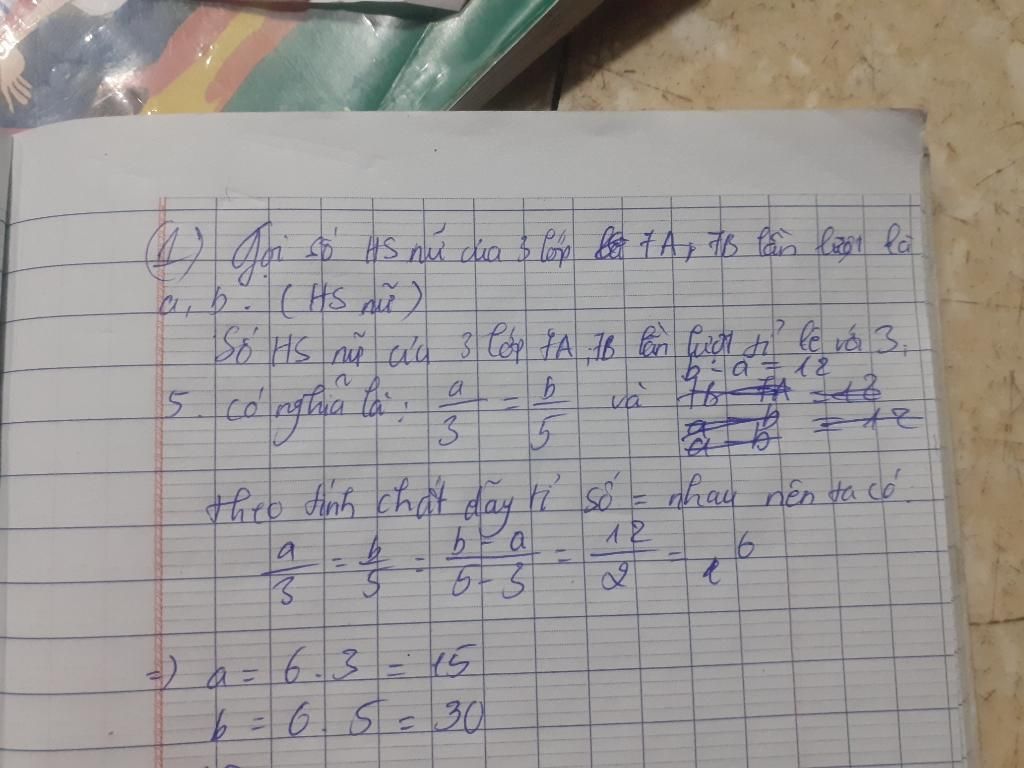 1) Gọi số HS nữ của 3 lớp 7A, 7B lần lượt là
a, b. (HS nữ)
Số HS nữ của 3 lớp 7A, 7B lần lượt tỉ lệ với 3,
5. có nghĩa là: a/3 = b/5 và b - a = 12
7B - 7A = 12
a - b = 12
a - b
theo tính chất dãy tỉ số = nhau nên ta có.
a/3 = b/5 = b - a/5 - 3 = 12/2 = 6
=) a = 6.3 = 15
b = 6.5 = 30